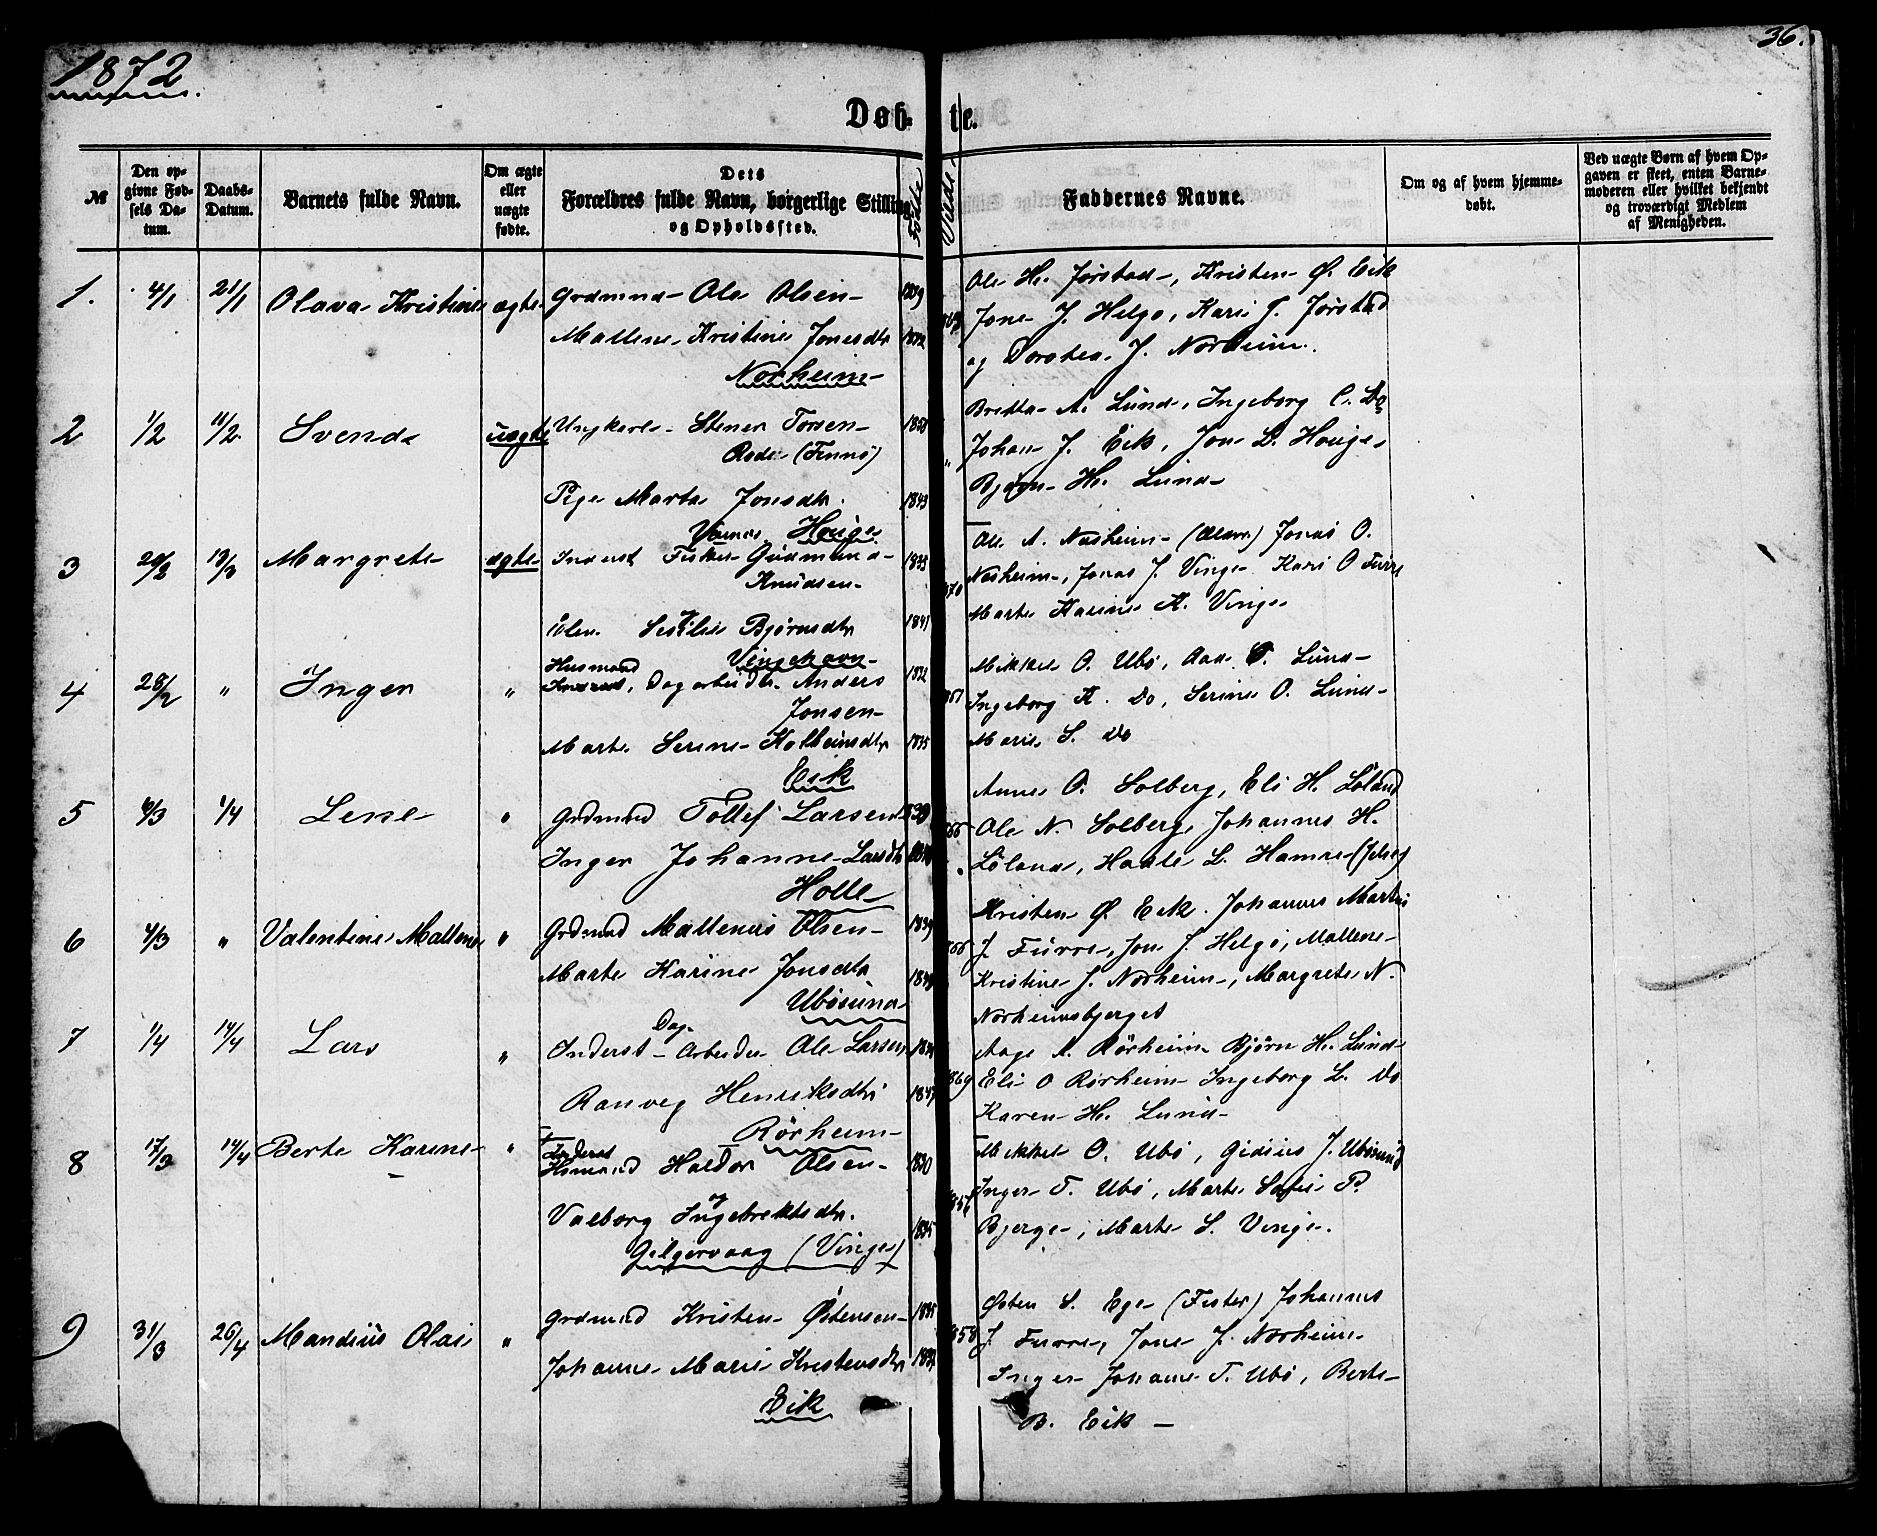 1872
36.
Døbte.
№
Den opgivne Fødsels Datum.
Daabs-Datum.
Barnets fulde Navn.
Om ægte eller uægte fødte.
Dets Forældres fulde Navn, borgerlige Stilling og Opholdssted.
Fødte
Viede
Faddernes Navne.
Om og af hvem hjemmedøbt.
Ved uægte Børn af hvem Opgaven er skeet, enten Barnemoderen eller hvilket bekjendt og troværdigt Medlem af Menigheden.
1. 4/1 21/1 Olava Kristine ægte
Grdmnd Ole Olsen 1839
Mallene Kristine Jonesdtr
Norheim
Ole H. Jørstad, Kristen Ø. Eik
Jone J. Helgø, Kari J. Jørstad
og Dorthea J. Norheim.
2 1/2 11/2 Svend uægte
Ungkarl Stener Torsen
Rode (Finnø)
Pige Marta Jonsdtr. 1843
Houge
Britta A. Lund, Ingeborg C. Do
Johan J. Eik, Jon L. Houge
Bjørn H. Lund
3 13/3 Margrete ægte
Inderst Fisker Gudmund
Knudsen
Elen Sesilie Bjørnsdtr 1841
Vingehavn
Ole A. Nesheim Jonas O.
Nesheim, Jonas J. Vinge Kari O Furre
Marte Karine K. Vinge
4 28/2 „ Inger „
Husmand
Dagarbeider Anders 1832
Jonsen
Marte Serine Kolbeinsdtr 1835
Eik
Mikkel O. Ubø, Aad Lund
Ingeborg K. Do, Serine O. Lund
Marie S. Do
5 6/3 1/4 Lene „
Grdmnd Tollef Larsen
Inger Johanne Larsdtr
Holle
Anne O. Solberg, Eli H. Løland
Ole N. Solberg, Johannes H.
Løland, Hamre (Jelse)
6 4/3 „ Valentine Mallene „
Grdmnd Mallenius Olsen 1839
Marte Karine Jonsdtr
Ubøsund
Kristen Ø. Eik. Johannes Martin
J. Furre, Jon J. Helgø, Mallene
Kristine J. Norheim, Margrete N.
Norheimsbjerget
7 1/4 14/4 Lars „
Inderst Dag-Arbeider Ole Larsen
Ranveg Henriksdtr 1847
Rørheim
Aage A. Rørheim Bjørn H. Lund
Eli O Rørheim Ingeborg L. Do
Karen H. Lund
8 17/3 14/4 Berte Karine „
Inderst
Husmand Haldor Olsen 1830
Valborg Ingebrektsdtr. 1835
Gilgervaag (Vinge)
Mikkel O. Ubø, Gidius J. Ubøsund
Inger T. Ubø, Marte Sofie P.
Bjerge, Marte S. Vinge.
9 31/3 26/4 Mandius Olai „
Grdmnd Kristen Østensen 1835
Johanne Marie Kristensdtr
Eik
1858
Østen S. Ege (Fister) Johannes
J. Furre, Jone J. Norheim
Inger Johanne T. Ubø, Berte
B. Eik